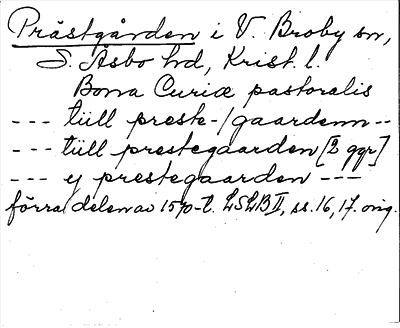 Prästgården i V. Broby sn,
S. Åsbo hd, Krist. l.
Bona Curiæ pastoralis
--- tüll preste-/gaardenn--
--- tüll prestegaarden [2 ggr]
--- ÿ prestegaarden ---
förra delen av 1570-t. LSLB II, ss. 16, 17. orig.